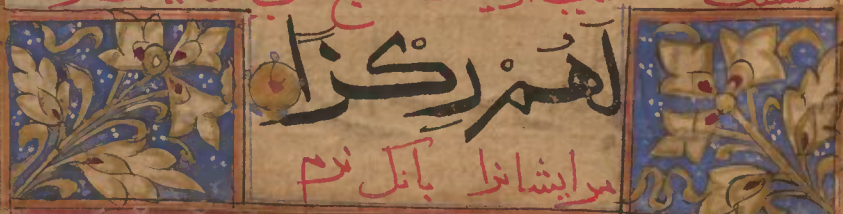 لَهُمْ رِكْزًا
مر ایشانرا بانک نرم